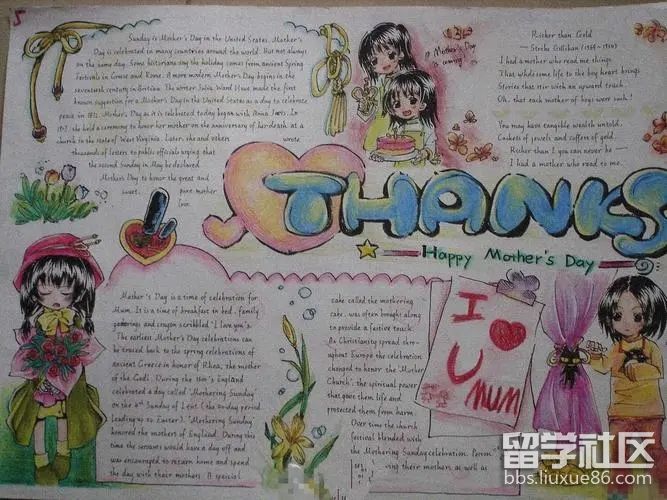 Sunday is Mother's Day in the United States. Mother's
Day is celebrated in many countries around the world. But not always
on the same day. Some historians say the holiday comes from ancient Spring
Festivals in Greece and Rome. A more modern Mother's Day begins in the
seventeenth century in Britain. The writer Julia Ward Howe made the first
known suggestion for a Mother's Day in the United States as a day to celebrate
peace in 1872. Mother's Day as it is celebrated today began with Anna Jarvis. In
1907, she held a ceremony to honor her mother on the anniversary of her death, at a
church in the state of West Virginia. Later, she and others wrote
thousands of letters to public officials urging that
the second Sunday in May be declared
Mother's Day to honor the great and
sweet, pure mother
love.
Mother's Day
is coming!
Richer than Gold
I had a mother who read me things
That wholesome life to the boy heart brings
Stories that stir with an upward touch.
Oh, that each mother of boys were such!
You may have tangible wealth untold,
Caskets of jewels and coffers of gold.
Richer than I you can never be —
I had a mother who read to me.
THANKS
Happy Mother's Day
Mother's Day is a time of celebration for
Mum. It is a time of breakfast in bed, family
gatherings and crayon scribbled "I love you"s.
The earliest Mother's Day celebrations can
be traced back to the spring celebrations of
ancient Greece in honor of Rhea, the mother
of the Gods. During the 1600's England
celebrated a day called "Mothering Sunday"
on the 4th Sunday of Lent (the 40 day period
leading up to Easter). "Mothering Sunday"
honored the mothers of England. During this
time the servants would have a day off and
was encouraged to return home and spend
the day with their mothers. A special
cake called the mothering
cake, was often brought along
to provide a festive touch.
As Christianity spread thr-
oughout Europe the celebration
changed to honor the "Mother
Church", the spiritual power
that gave them life and
protected them from harm.
Over time the church
festival blended with
the Mothering Sunday celebration. People
their mothers as well as
I
U
MUM
留学社区
bbs.liuxue86.com